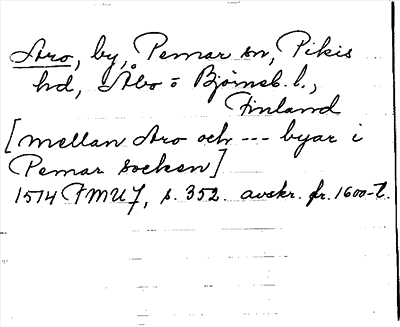 Aro, by, Pemar sn, Pikis
hd, Åbo = Björneb. l.,
Finland
[mellan Aro och --- byar i
Pemar socken]
1514 FMU 7, s. 352. avskr. fr. 1600-t.